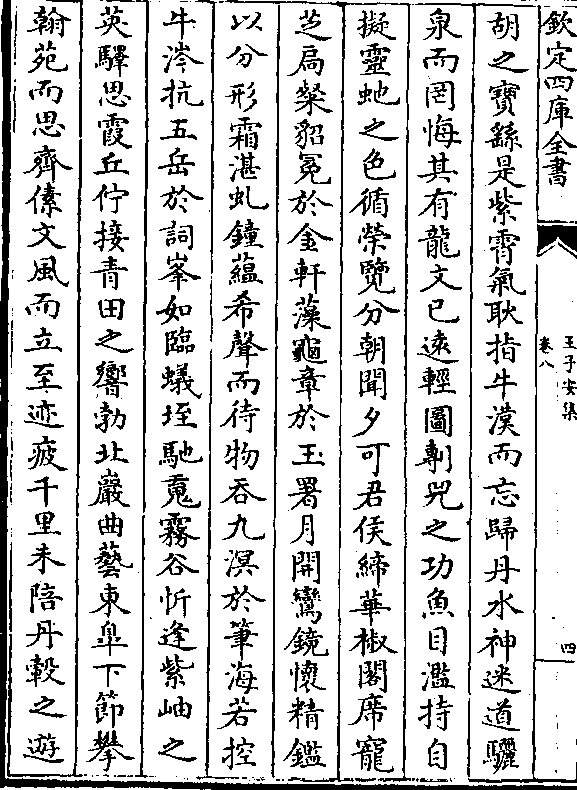 欽定四庫全書
王子安集
卷八
四
胡之寶繇是紫霄氣耿指牛漢而忘歸丹水神迷道驪
泉而罔悔其有龍文已遠輕圖剸兕之功魚目濫持自
擬靈虵之色循榮覽分朝聞夕可君侯締華椒閣席寵
芝扃粲貂冕於金軒藻龜章於玉署月開鸞鏡懷精鑑
以分形霜湛虬鐘藴希聲而待物吞九溟於筆海若控
牛涔抗五岳於詞峯如臨蟻垤馳䨲霧谷忻逢紫岫之
英驛思霞丘佇接青田之響勃北巖曲藝東臯下節攀
翰苑而思齊傃文風而立至迹疲千里未陪丹轂之遊